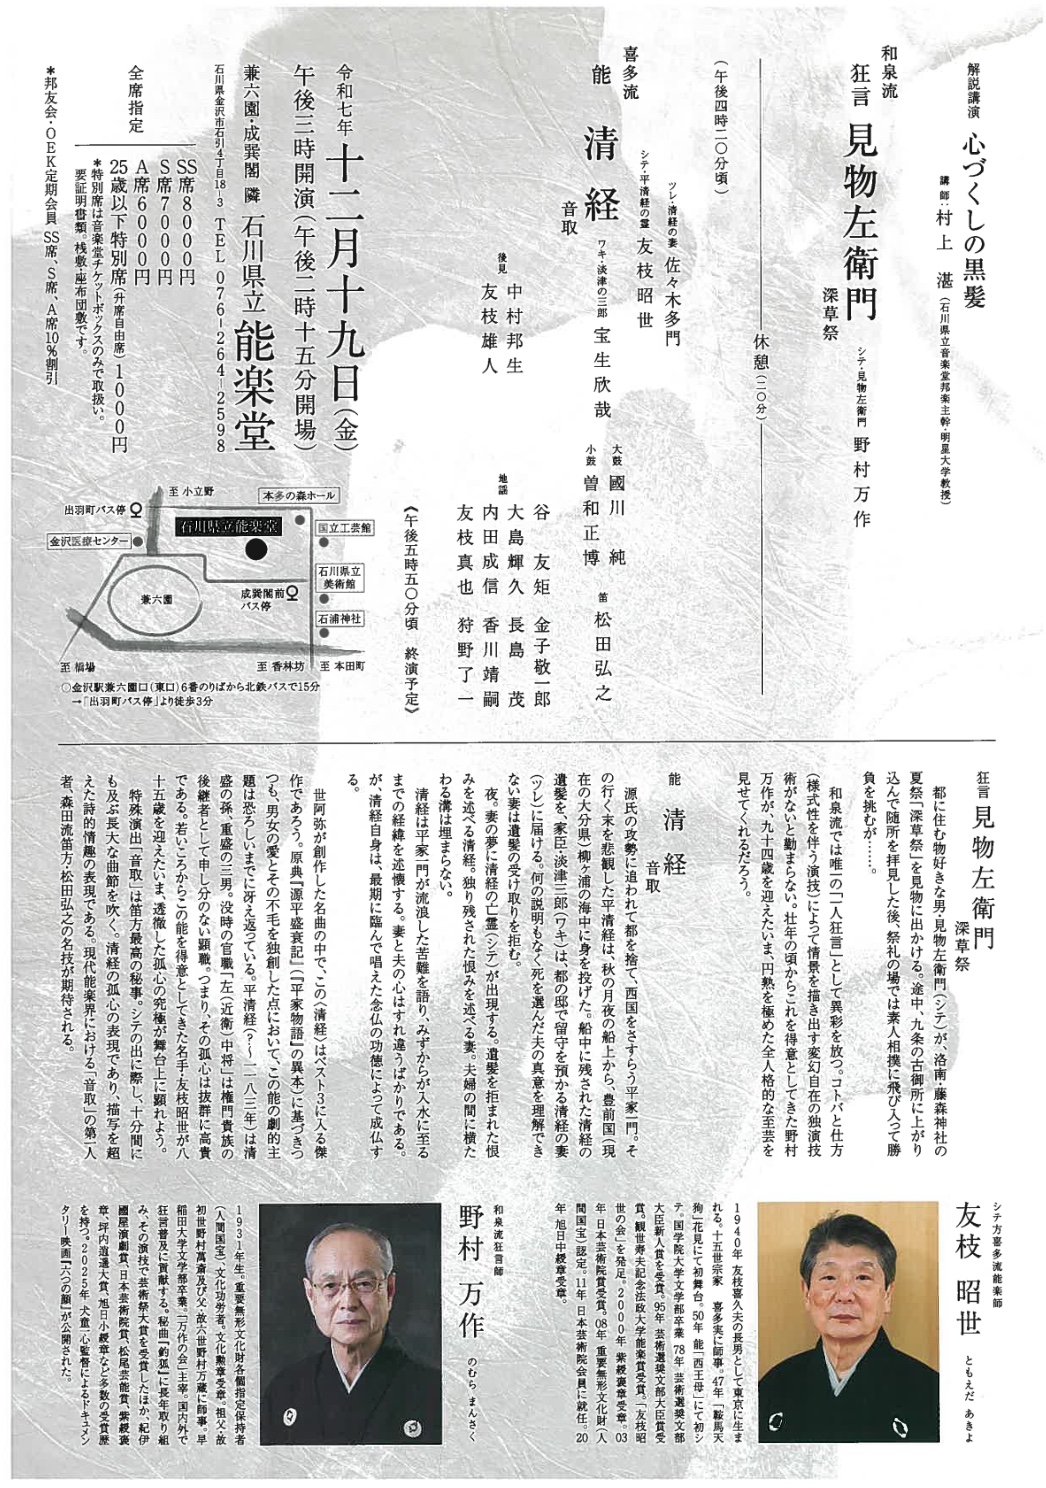 解説講演 心づくしの黒髪
講師：村上 湛（石川県立音楽堂邦楽主幹・明星大学教授）
和泉流
狂言 見物左衛門 深草祭
シテ・見物左衛門 野村万作
休憩（二〇分）
（午後四時二〇分頃）
喜多流
能 清経 音取
ツレ・清経の妻 佐々木多門
シテ・平清経の霊 友枝昭世
ワキ・淡津の三郎 宝生欣哉
大鼓 國川 純
小鼓 曽和正博
笛 松田弘之
後見
中村邦生
友枝雄人
地謡
谷 友矩 金子敬一郎
大島輝久 長島 茂
内田成信 香川靖嗣
友枝真也 狩野了一
《午後五時五〇分頃 終演予定》
令和七年 十二月十九日（金）
午後三時開演（午後二時十五分開場）
兼六園・成巽閣 隣 石川県立 能楽堂
石川県金沢市石引4丁目18-3 TEL 076-264-2598
全席指定
SS席8000円
S席7000円
A席6000円
25歳以下特別席（升席自由席）1000円
＊特別席は音楽堂チケットボックスのみで取扱い。
要証明書類。桟敷・座布団敷です。
＊邦友会・OEK定期会員 SS席、S席、A席10％割引
至 小立野
本多の森ホール
出羽町バス停
石川県立能楽堂
国立工芸館
金沢医療センター
石川県立
美術館
兼六園
成巽閣前
バス停
石浦神社
至 橋場
至 香林坊
至 本田町
○金沢駅兼六園口（東口）6番のりばから北鉄バスで15分
→「出羽町バス停」より徒歩3分
狂言 見物左衛門 深草祭
都に住む物好きな男・見物左衛門（シテ）が、洛南・藤森神社の
夏祭「深草祭」を見物に出かける。途中、九条の古御所に上がり
込んで随所を拝見した後、祭礼の場では素人相撲に飛び入って勝
負を挑むが……。
和泉流では唯一の「一人狂言」として異彩を放つ。コトバと仕方
（様式性を伴う演技）によって情景を描き出す変幻自在の独演技
術がないと勤まらない。壮年の頃からこれを得意としてきた野村
万作が、九十四歳を迎えたいま、円熟を極めた全人格的な至芸を
見せてくれるだろう。
能 清経 音取
源氏の攻勢に追われて都を捨て、西国をさすらう平家一門。そ
の行く末を悲観した平清経は、秋の月夜の船上から、豊前国（現
在の大分県）柳ヶ浦の海中に身を投げた。船中に残された清経の
遺髪を、家臣・淡津三郎（ワキ）は、都の邸で留守を預かる清経の妻
（ツレ）に届ける。何の説明もなく死を選んだ夫の真意を理解でき
ない妻は遺髪の受け取りを拒む。
夜。妻の夢に清経の亡霊（シテ）が出現する。遺髪を拒まれた恨
みを述べる清経。独り残された恨みを述べる妻。夫婦の間に横た
わる溝は埋まらない。
清経は平家一門が流浪した苦難を語り、みずからが入水に至る
までの経緯を述懐する。妻と夫の心はすれ違うばかりである。
が、清経自身は、最期に臨んで唱えた念仏の功徳によって成仏す
る。
世阿弥が創作した名曲の中で、この〈清経〉はベスト3に入る傑
作であろう。原典『源平盛衰記』（『平家物語』の異本）に基づきつ
つも、男女の愛とその不毛を独創した点において、この能の劇的主
題は恐ろしいまでに冴え返っている。平清経（？〜一一八三年）は清
盛の孫、重盛の三男。没時の官職「左（近衛）中将」は権門貴族の
後継者として申し分のない顕職。つまり、その孤心は抜群に高貴
である。若いころからこの能を得意としてきた名手・友枝昭世が八
十五歳を迎えたいま、透徹した孤心の究極が舞台上に顕れよう。
特殊演出「音取」は笛方最高の秘事。シテの出に際し、十分間に
も及ぶ長大な曲節を吹く。清経の孤心の表現であり、描写を超
えた詩的情趣の表現である。現代能楽界における「音取」の第一人
者、森田流笛方・松田弘之の名技が期待される。
シテ方喜多流能楽師
友枝 昭世 ともえだ あきよ
1940年 友枝喜久夫の長男として東京に生ま
れる。十五世宗家 喜多実に師事。47年「鞍馬天
狗」花見にて初舞台。50年 能「西王母」にて初シ
テ。国学院大学文学部卒業 78年 芸術選奨文部
大臣新人賞を受賞。95年 芸術選奨文部大臣賞受
賞。観世寿夫記念法政大学能楽賞受賞。「友枝昭
世の会」を発足。2000年 紫綬褒章受章。03
年 日本芸術院賞受賞。08年 重要無形文化財（人
間国宝）認定。11年 日本芸術院会員に就任。20
年 旭日中綬章受章。
和泉流狂言師
野村 万作 のむら まんさく
1931年生。重要無形文化財各個指定保持者
（人間国宝）・文化功労者。文化勲章受章。祖父・故
初世野村萬斎及び父・故六世野村万蔵に師事。早
稲田大学文学部卒業。「万作の会」主宰。国内外で
狂言普及に貢献する。秘曲『釣狐』に長年取り組
み、その演技で芸術祭大賞を受賞したほか、紀伊
國屋演劇賞、日本芸術院賞、松尾芸能賞、紫綬褒
章、坪内逍遥大賞、旭日小綬章など多数の受賞歴
を持つ。2025年 犬童一心監督によるドキュメン
タリー映画『六つの顔』が公開された。